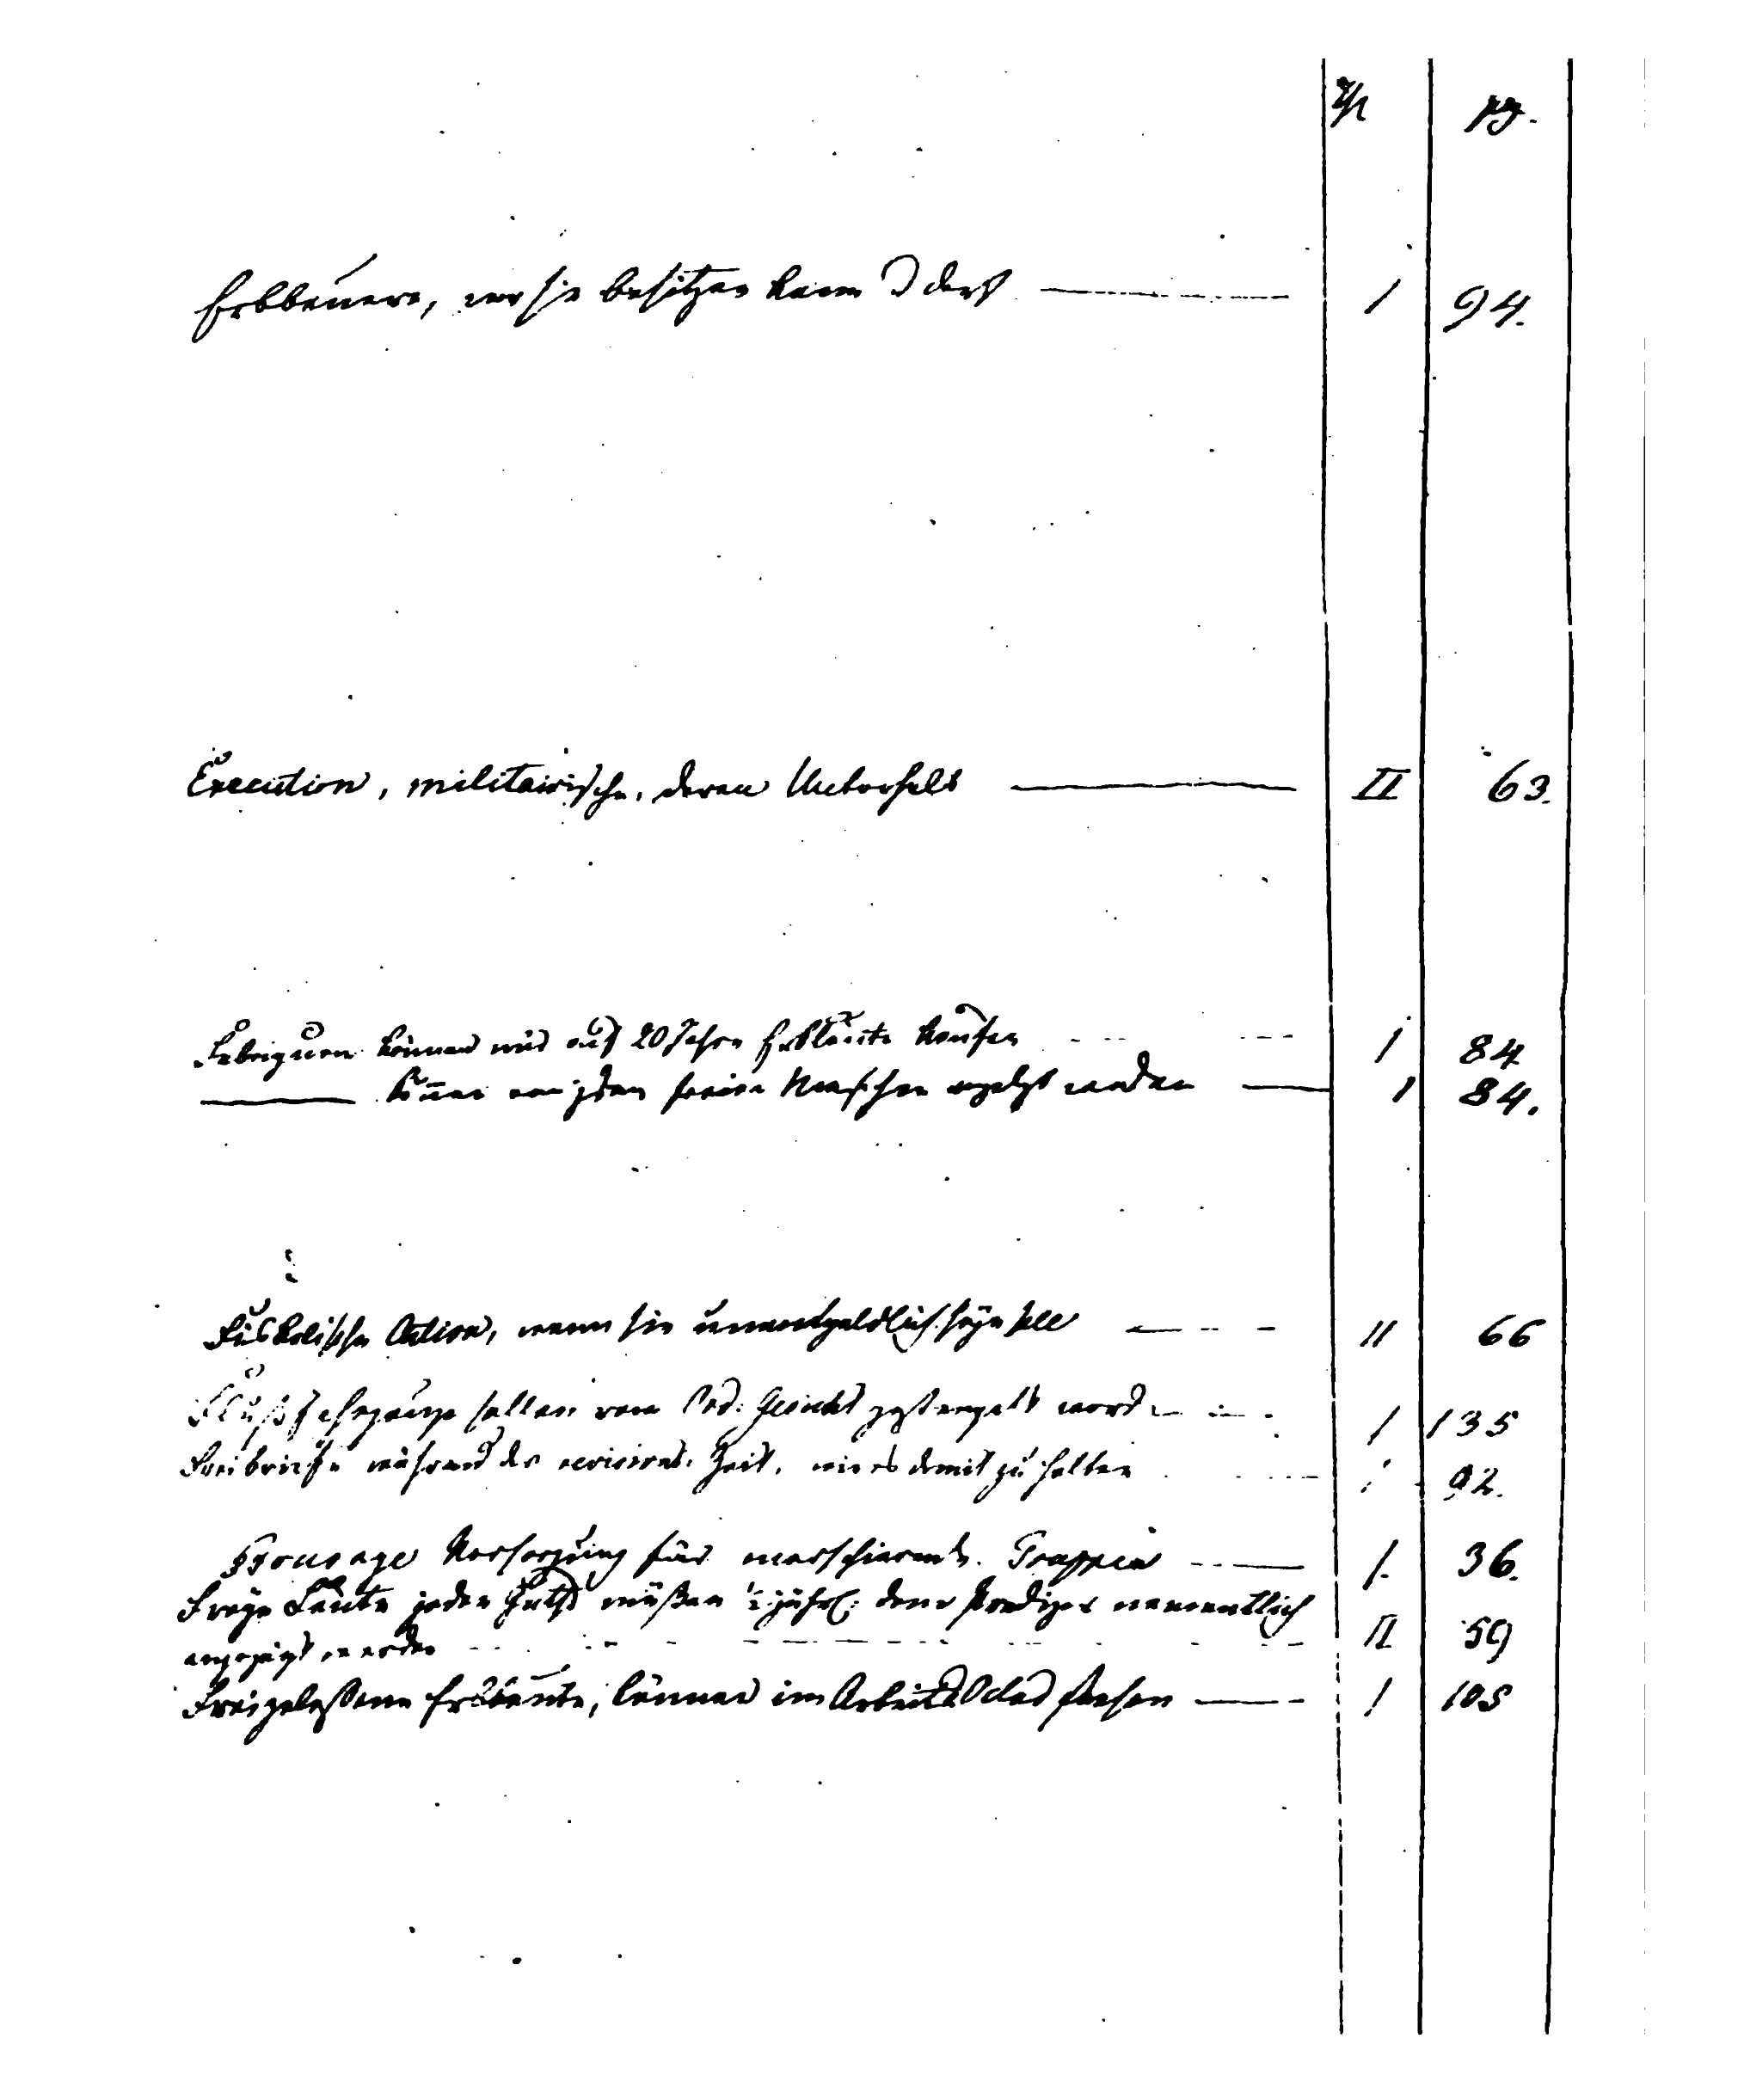 Th pag.
Erbbauern, wer sie besitzen kann u darf — I 94.
Execution, militairische, deren Unterhalt — II 63.
Fabriquen können nur auf 20 Jahre Erbleute kaufen — I 84
— können von jedem freien Menschen angelegt werden — I 84.
Fiskalische Action, wenn sie unentgeldlich seyn soll — II 66
Flußfahrzeuge sollen vom Ord: Gericht gestempelt werden — I 135
Freibriefe während der revisions Zeit, wie es damit zu halten — I 92.
Fourage Versorgung für marschierende Truppen — I. 36.
Freye Leute jeden Guths müßen ½ jährl: dem Prediger namentlich
angezeigt werden — II 59
Freigelaßene Erbleute, können im Arbeits Oclad stehen — I 105